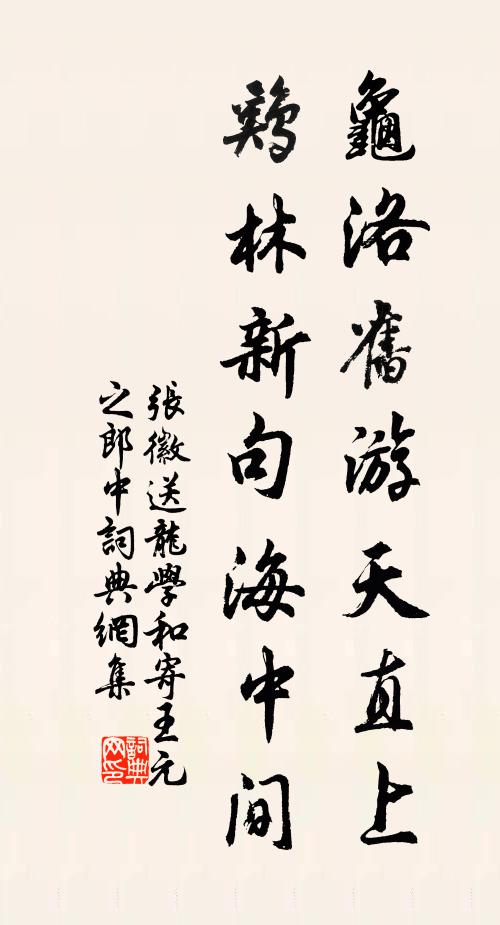 龜洛舊游天直上
鷄林新句海中間
張徽送龍學和寄王元
之郎中詞典網集
詞典
网印